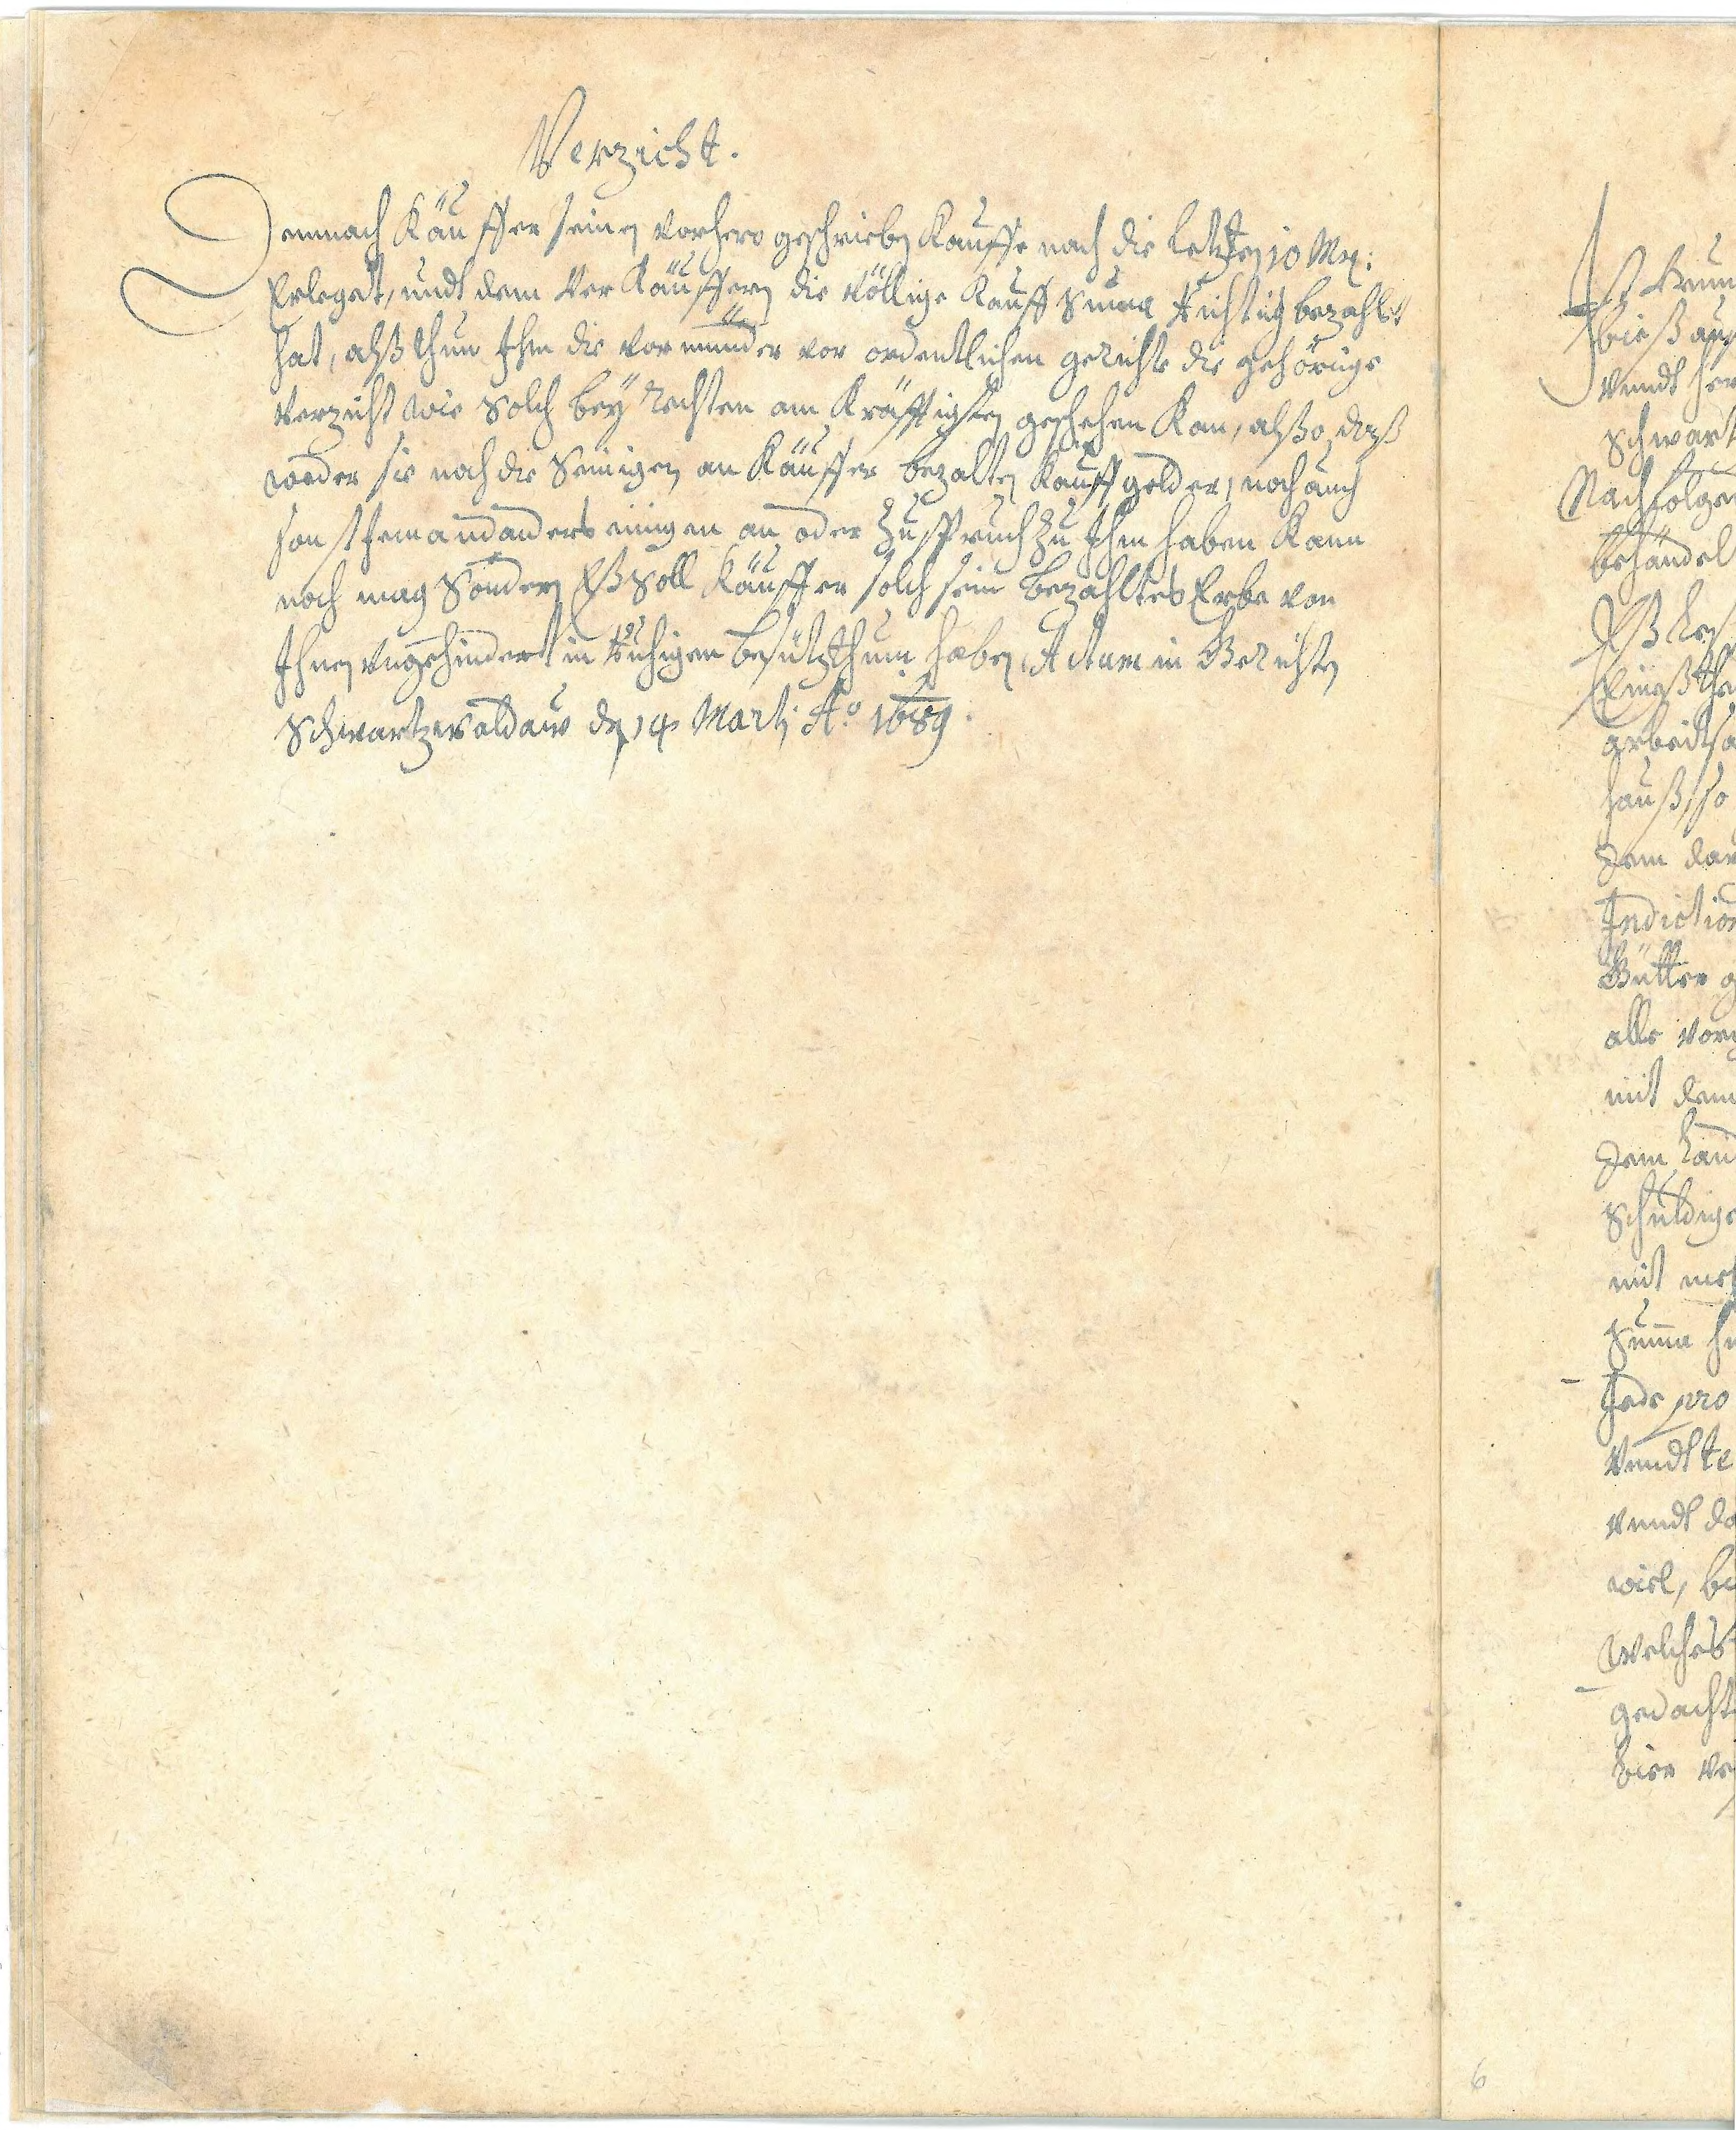 Verzicht.
Demnach Käuffer seinen vorhero geschrieben Kauffe nach die letzten 10 Mrg:
Erleget, undt dem Ver Käuffern die völlige Kauff Suma Richtig bezahlet
hat, alß thun Ihm die vormünder vor ordentlichen gerichte die gehörige
verzicht wie solch bey Rechten am Kräfftigsten geschehen Kan, alßo daß
weder sie noch die Seinigen an Käuffer bezalten Kauffgelder, noch auch
sonst Jemand anders einigen an oder Zuspruch zu Ihm haben Kann
noch mag Sondern Eß soll Käuffer solch sein bezahltes Erbe von
Ihnen ungehindert in Ruhigem besützthum haben, Actum in Gerichten
Schwartzwaldaw den 14 Marti Ao 1689.
undt
Schwart
Nachfolge
behandel
hauß, so
dem
Indiction
Gütter
alle
mit dem
dem
Schuldige
mit
Summa
Jede pro
Vundt
vundt
viel,
welches
gedacht
6